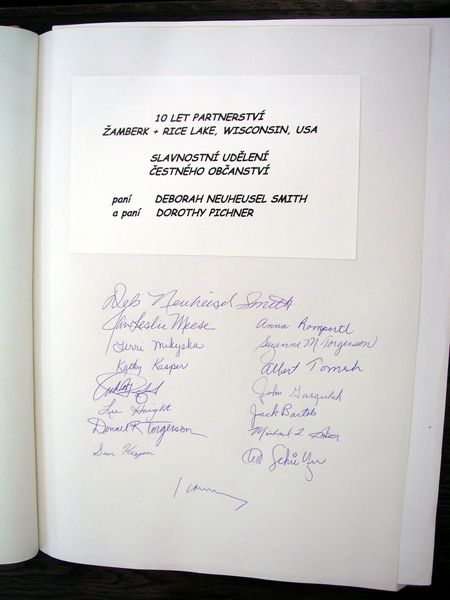 10 LET PARTNERSTVÍ
ŽAMBERK + RICE LAKE, WISCONSIN, USA
SLAVNOSTNÍ UDĚLENÍ
ČESTNÉHO OBČANSTVÍ
paní DEBORAH NEUHEUSEL SMITH
a paní DOROTHY PICHNER
Deb Neuheisel Smith
Jan Leslie Meese
Terri Mikyska
Kathy Kasper
Lee Haight
Donald R Torgerson
Sean Kasper
Anna Romportl
Suzanne M. Torgerson
Albert Tomesh
John
Jack Bartls
Michael
Ted